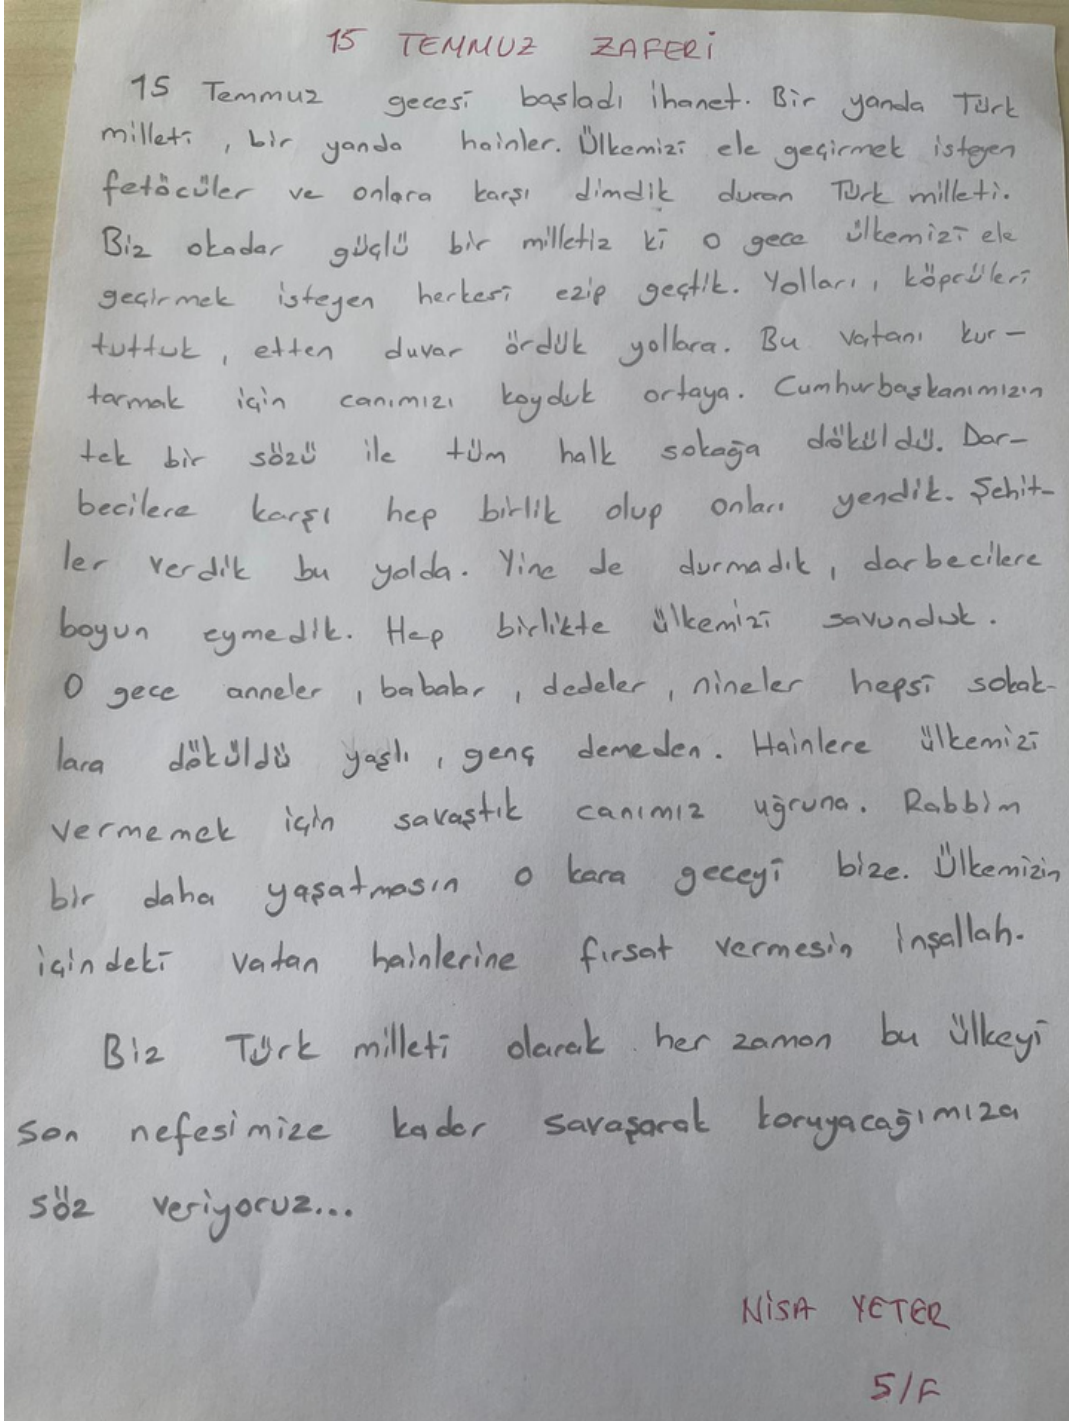 15 TEMMUZ ZAFERİ
15 Temmuz gecesi başladı ihanet. Bir yanda Türk
milleti, bir yanda hainler. Ülkemizi ele geçirmek isteyen
fetöcüler ve onlara karşı dimdik duran Türk milleti.
Biz okadar güçlü bir milletiz ki o gece ülkemizi ele
geçirmek isteyen herkesi ezip geçtik. Yolları, köprüleri
tuttuk, etten duvar ördük yollara. Bu vatanı kur-
tarmak için canımızı koyduk ortaya. Cumhurbaşkanımızın
tek bir sözü ile tüm halk sokağa döküldü. Dar-
becilere karşı hep birlik olup onları yendik. Şehit-
ler verdik bu yolda. Yine de durmadık, darbecilere
boyun eymedik. Hep birlikte ülkemizi savunduk.
O gece anneler, babalar, dedeler, nineler hepsi sokak-
lara döküldü yaşlı, genç demeden. Hainlere ülkemizi
vermemek için savaştık canımız uğruna. Rabbim
bir daha yaşatmasın o kara geceyi bize. Ülkemizin
içindeki vatan hainlerine fırsat vermesin inşallah.
Biz Türk milleti olarak her zaman bu ülkeyi
son nefesimize kadar savaşarak koruyacağımıza
söz veriyoruz...
NİSA YETER
5/F